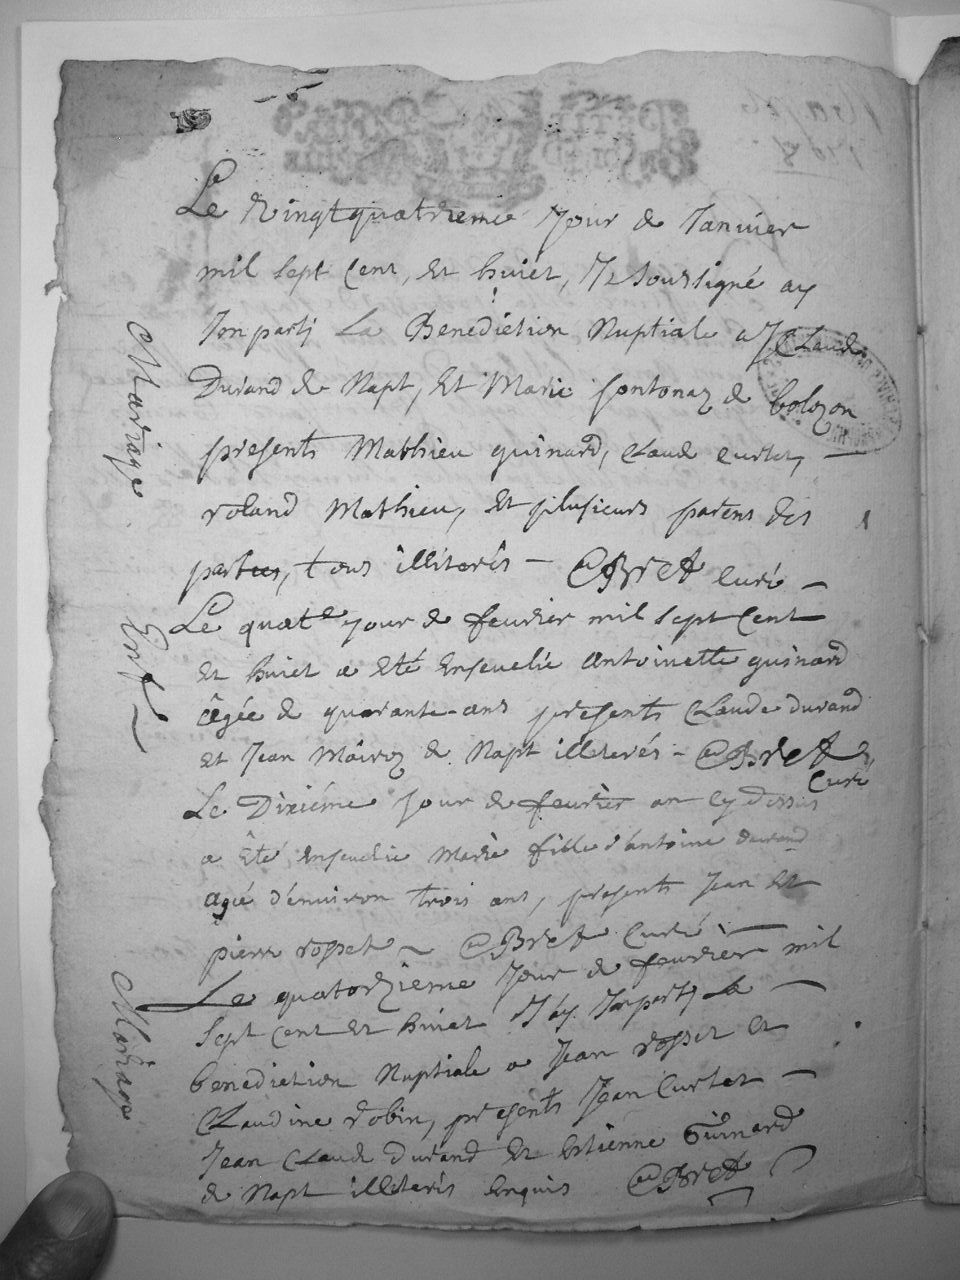 Le Vingtquatrieme Jour de Janvier
mil sept Cent, et huict, Je soussigné ay
Imparti La Benediction Nuptiale a J Claude
Durand de Napt, et Marie fontonaz de bolozon
presents Mathieu guinard, Claude curtet,
roland Mathieu, et plusieurs parens des
parties, tous illiterés - Bret Curé
Mariage
Le quatre jour de feurier mil sept Cent
et huict a eté enseuelie antoinette guinard
âgée de quarante ans presents Claude durand
et Jean Mairoz de Napt illiterés - Bret
Curé
Le Dixiéme Jour de feurier an cy dessus
a êté enseuelie Marie fille d'antoine durand
agée d'enuiron trois ans, presents Jean et
pierre rosset - Bret Curé
Le quatorzieme Jour de feurier mil
sept Cent et huict J'ay Imparty La
benediction Nuptiale a Jean rosset et
Claudine robin, presents Jean Curtet
Jean Claude Durand et estienne Guinard
de Napt illiterés enquis Bret
Mariage